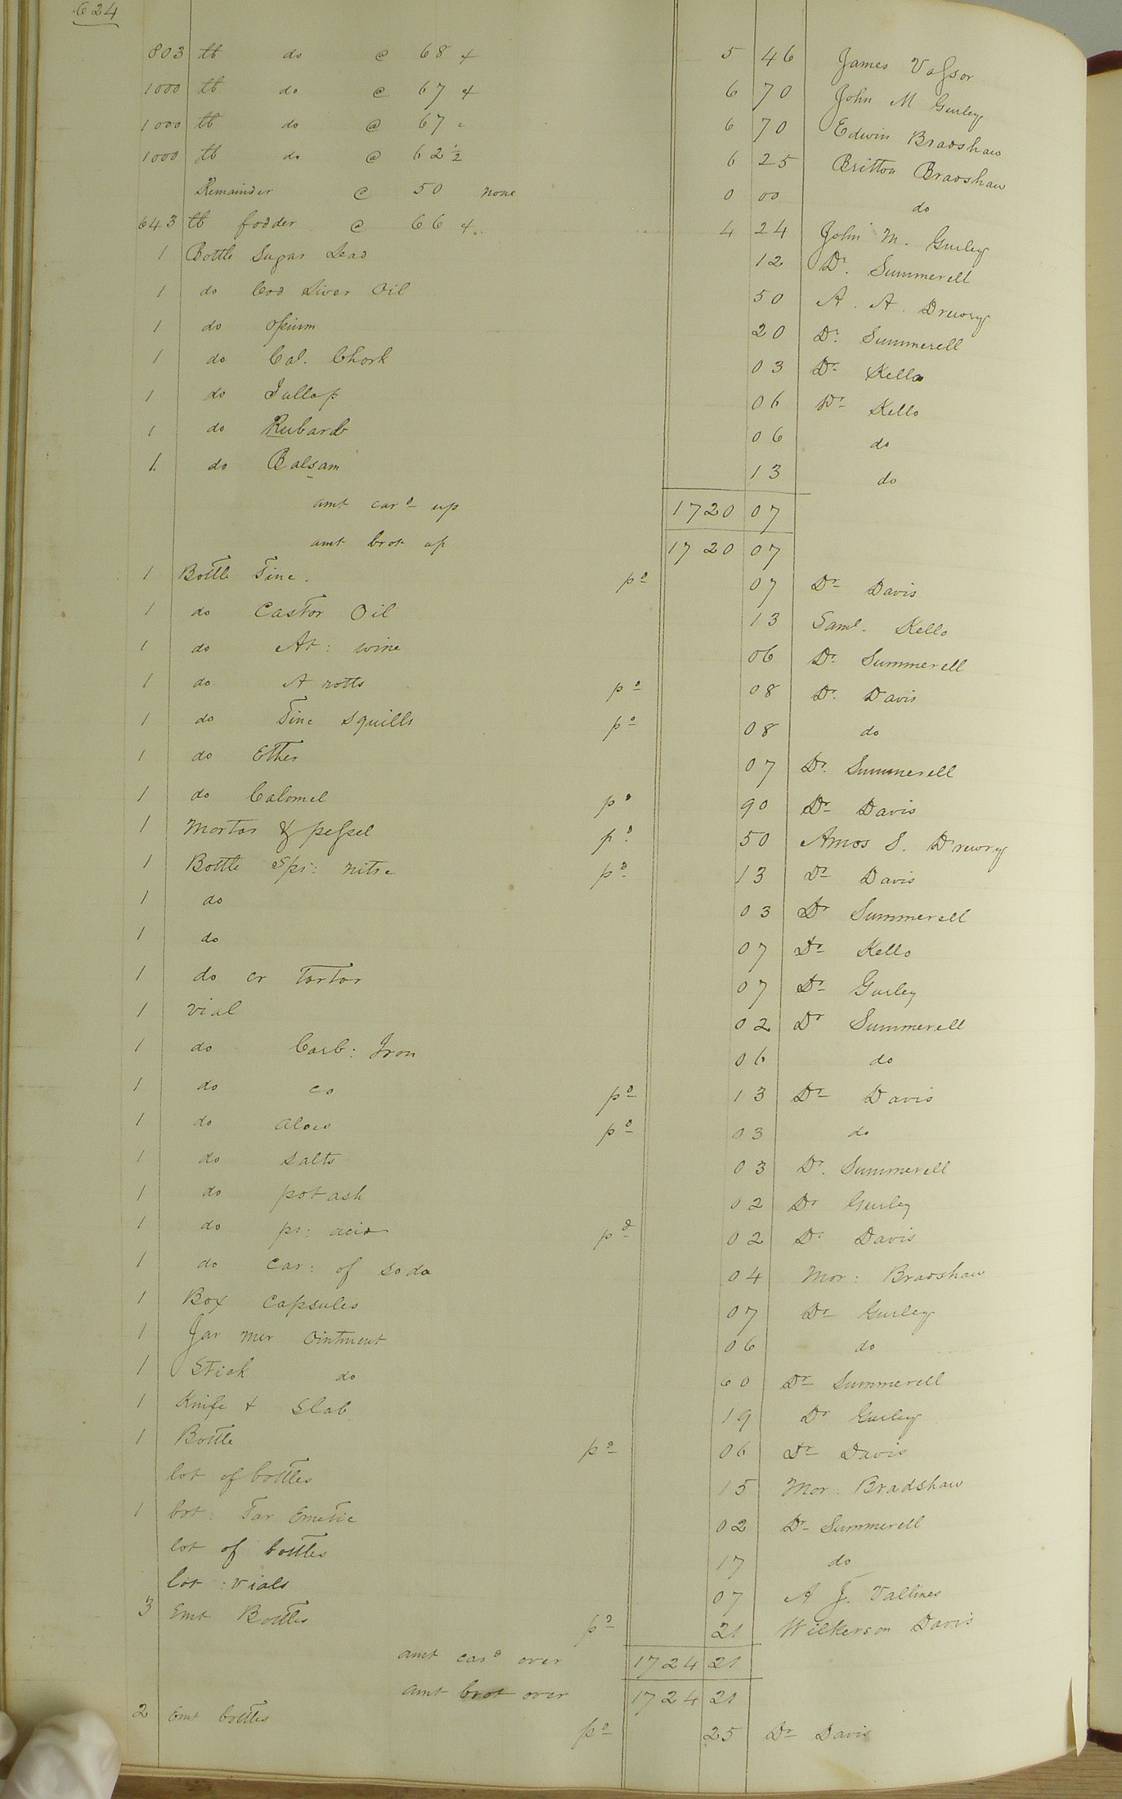 624
803 ℔ do @ 68 4 5 46 James Vaſsor
1000 ℔ do @ 67 4 6 70 John M Gurley
1000 ℔ do @ 67 " 6 70 Edwin Bradshaw
1000 ℔ do @ 62½ 6 25 Britton Bradshaw
Remainder @ 50 none 0 00 do
643 ℔ fodder @ 66 4. 4 24 John M. Gurley
1 Bottle Sugar Lead 12 Dr. Summerell
1 do Cod Liver Oil 50 A. A. Drewry
1 do Opium 20 Dr. Summerell
1 do Cal. Chork 03 Dr Kello
1 do Jullop 06 Dr Kello
1 do Rubarb 06 do
1. do Balsam 13 do
amt card up 1720 07
amt brot up 1720 07
1 Bottle Tinc. pd 07 Dr Davis
1 do Castor Oil 13 Saml. Kello
1 do At: wine 06 Dr Summerell
1 do A notts pd 08 Dr. Davis
1 do Tinc Squills pd 08 do
1 do Ether 07 Dr. Summerell
1 do Calomel pd 90 Dr Davis
1 Mortar & peſsel pd. 50 Amos S. Drewry
1 Bottle Spi: nitre pd. 13 Dr Davis
1 do 03 Dr Summerell
1 do 07 Dr Kello
1 do cr Tartar 07 Dr Gurley
1 vial 02 Dr Summerell
1 do Carb: Iron 06 do
1 do co pd 13 Dr Davis
1 do aloes pd 03 do
1 do salts 03 Dr. Summerell
1 do potash 02 Dr Gurley
1 do pr: acid pd 02 Dr Davis
1 do Car: of Soda 04 Mor: Bradshaw
1 Box Capsules 07 Dr Gurley
1 Jar mer Ointment 06 do
1 Stick do 60 Dr Summerell
1 Knife & Slab 19 Dr Gurley
1 Bottle pd 06 Dr Davis
lot of bottles 15 Mor. Bradshaw
1 bot: Tar Emetic 02 Dr Summerell
lot of bottles 17 do
lot : vials 07 A J. Vallines
3 Emt Bottles pd 21 Wilkerson Davis
amt card over 1724 21
amt brot over 1724 21
2 Emt bottles pd 25 Dr Davis